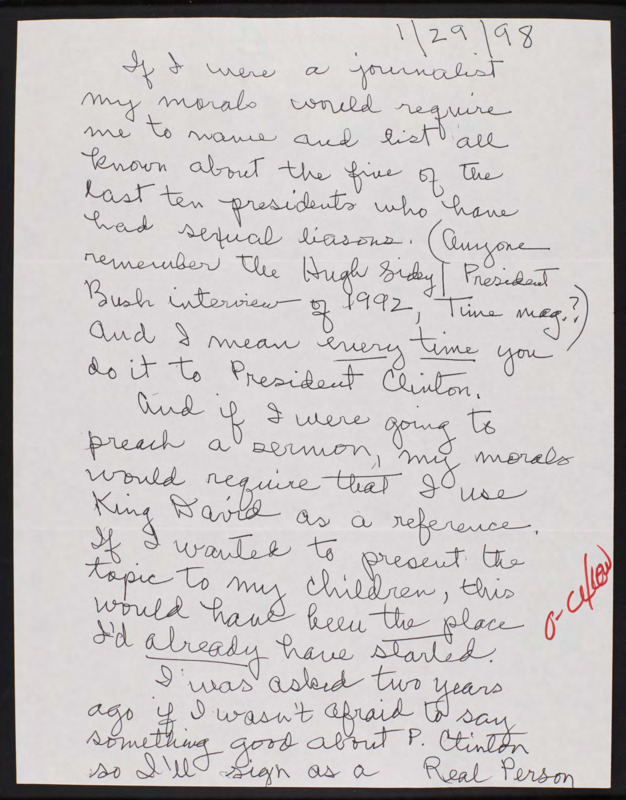 1/29/98
If I were a journalist
my morals would require
me to name and list all
known about the five of the
last ten presidents who have
had sexual liasons. (Anyone
remember the Hugh Sidey/President
Bush interview of 1992, Time mag.?)
And I mean every time you
do it to President Clinton.
And if I were going to
preach a sermon, my morals
would require that I use
King David as a reference.
If I wanted to present the
topic to my children, this
would have been the place
I'd already have started.
I was asked two years
ago if I wasn't afraid to say
something good about P. Clinton
so I'll sign as a Real Person